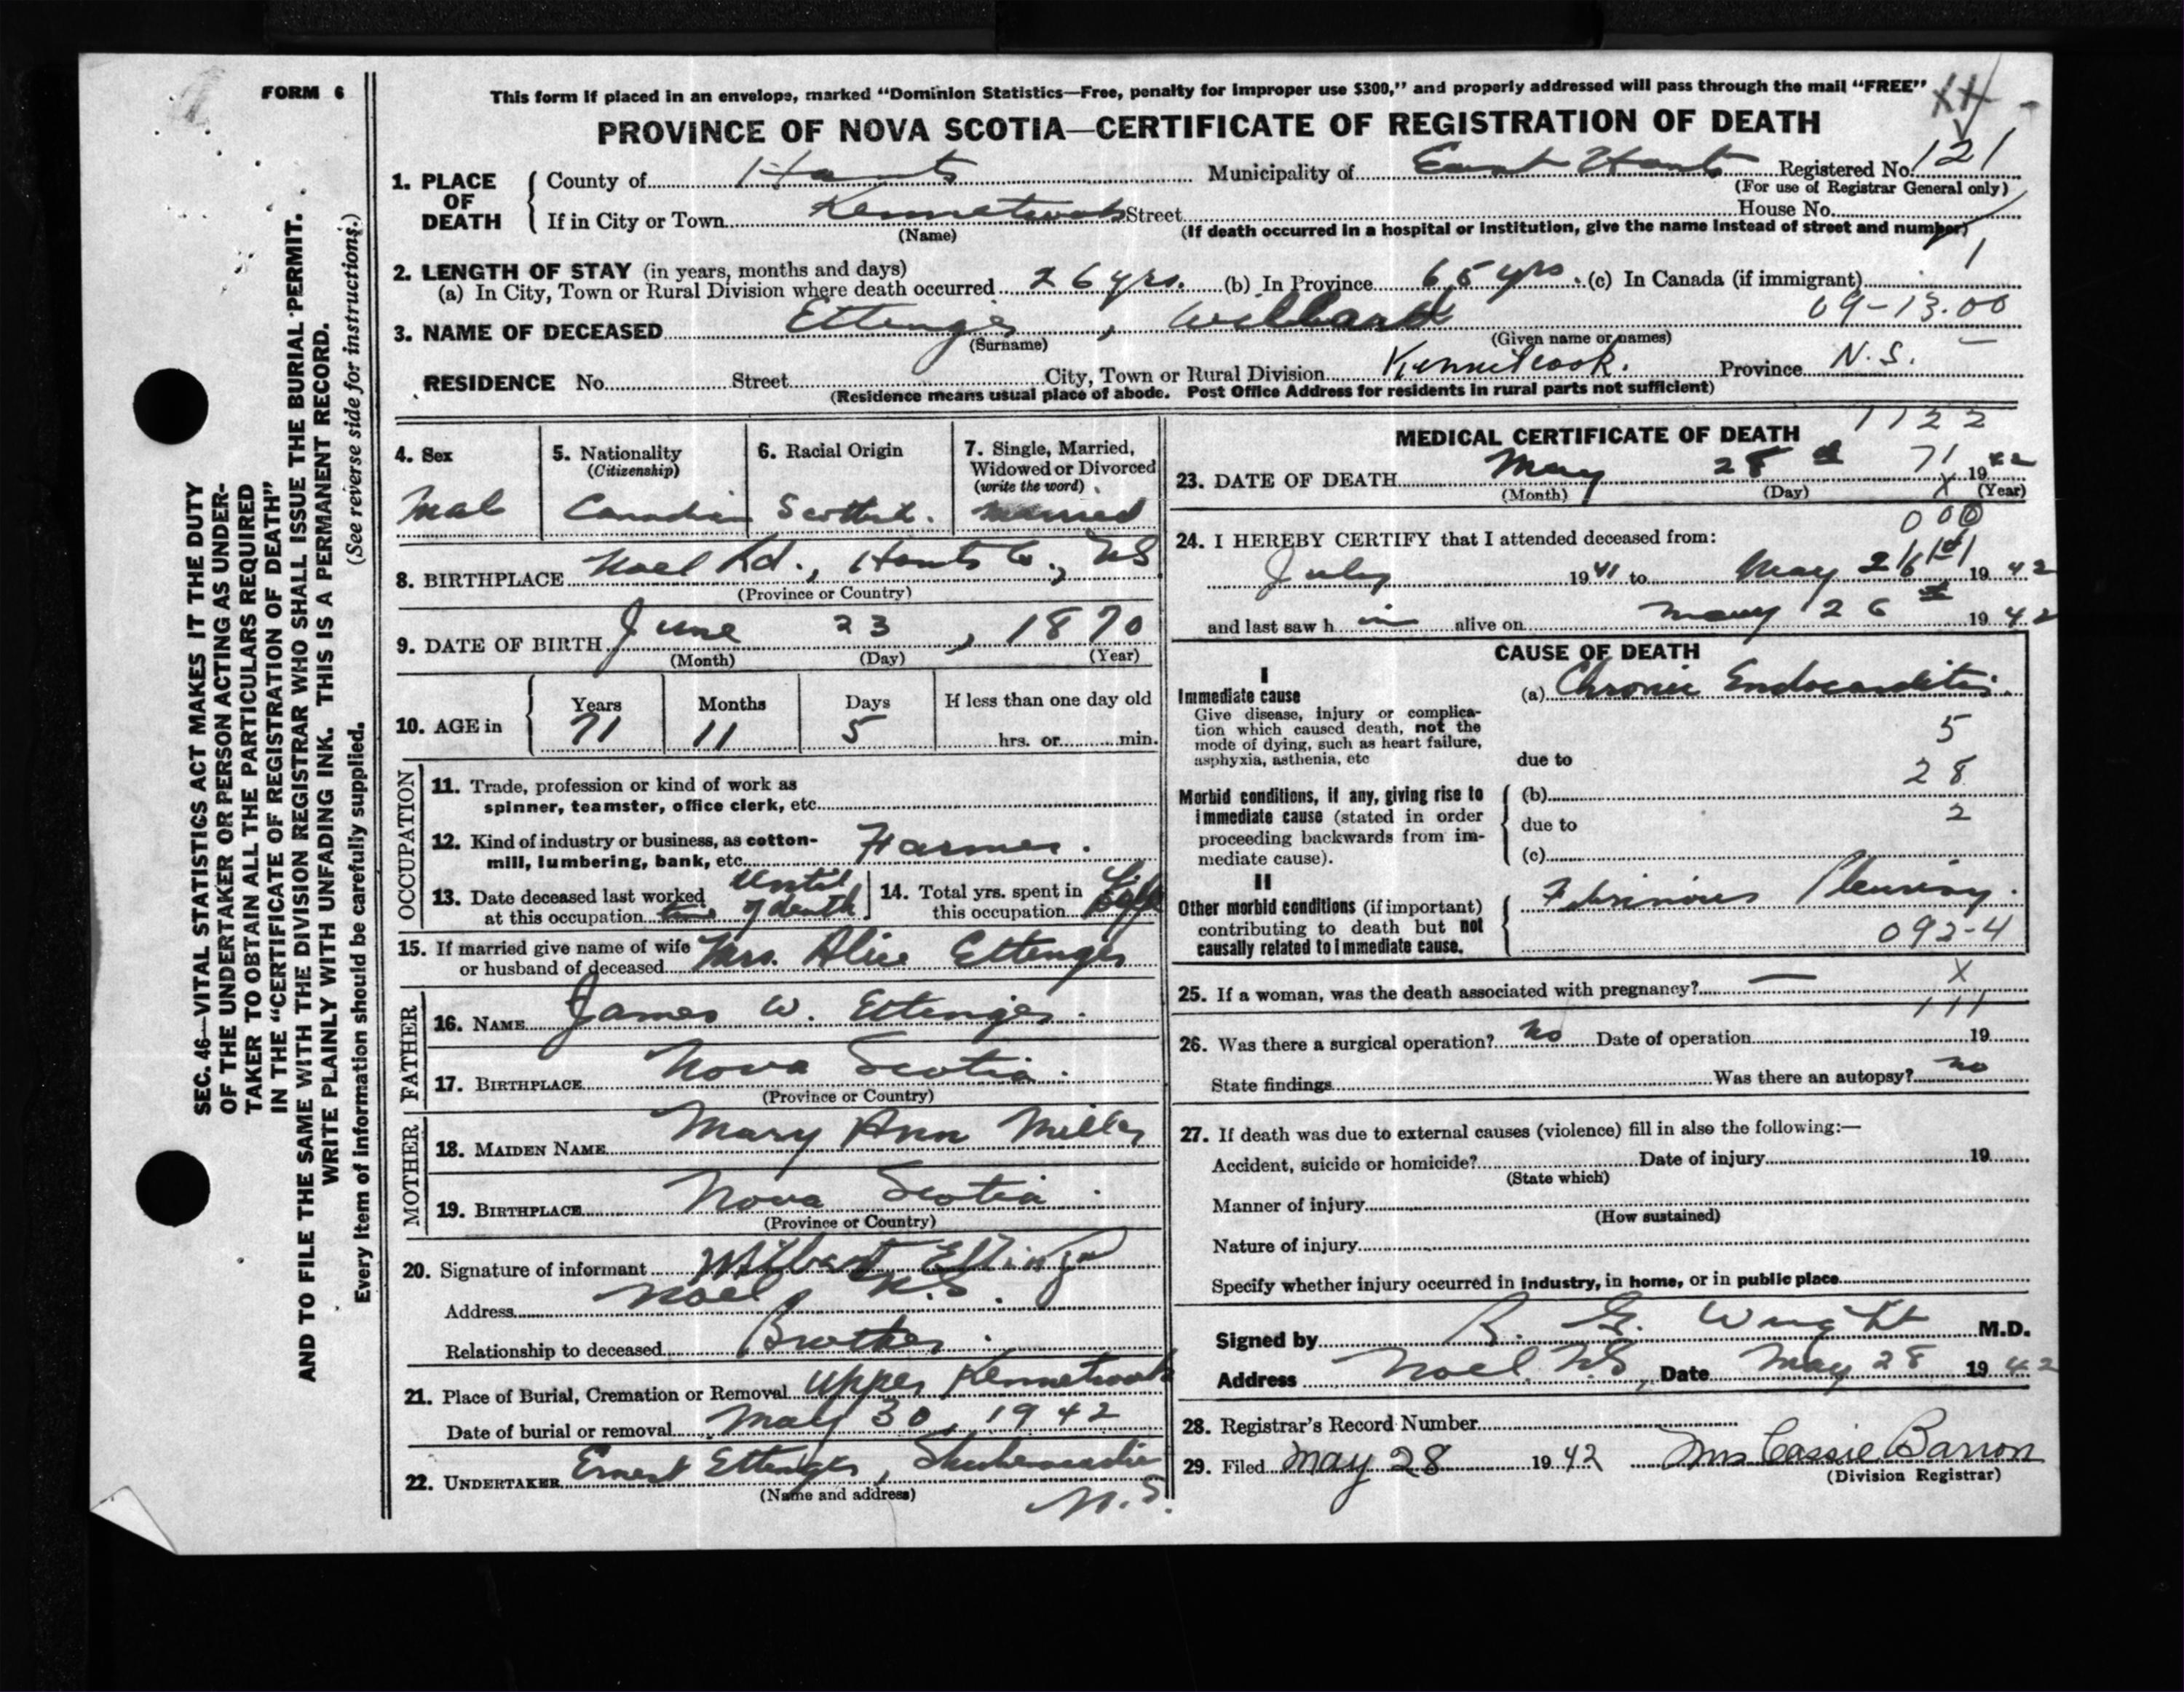 FORM 6
This form if placed in an envelope, marked “Dominion Statistics—Free, penalty for improper use $300,” and properly addressed will pass through the mail “FREE”
PROVINCE OF NOVA SCOTIA—CERTIFICATE OF REGISTRATION OF DEATH
1. PLACE OF DEATH
County of Hants Municipality of East Hants Registered No. 121
(For use of Registrar General only)
If in City or Town Kennetcook Street House No.
(Name) (If death occurred in a hospital or institution, give the name instead of street and number)
1
2. LENGTH OF STAY (in years, months and days)
(a) In City, Town or Rural Division where death occurred 26 yrs. (b) In Province 65 yrs. (c) In Canada (if immigrant)
09-13.00
3. NAME OF DECEASED Ettinger, Willard
(Surname) (Given name or names)
RESIDENCE No. Street City, Town or Rural Division Kennetcook. Province N.S.
(Residence means usual place of abode. Post Office Address for residents in rural parts not sufficient)
4. Sex 5. Nationality (Citizenship) 6. Racial Origin 7. Single, Married, Widowed or Divorced (write the word)
Male Canadian Scottish. Married
8. BIRTHPLACE Noel Rd., Hants Co., NS
(Province or Country)
9. DATE OF BIRTH June 23, 1870
(Month) (Day) (Year)
10. AGE in Years Months Days If less than one day old
71 11 5 hrs. or min.
OCCUPATION
11. Trade, profession or kind of work as
spinner, teamster, office clerk, etc.
12. Kind of industry or business, as cotton-
mill, lumbering, bank, etc. Farmer.
13. Date deceased last worked
at this occupation until time of death
14. Total yrs. spent in
this occupation Life
15. If married give name of wife
or husband of deceased Mrs. Alice Ettinger
FATHER
16. NAME James W. Ettinger.
17. BIRTHPLACE Nova Scotia.
(Province or Country)
MOTHER
18. MAIDEN NAME Mary Ann Miller
19. BIRTHPLACE Nova Scotia.
(Province or Country)
20. Signature of informant Wilbert Ettinger
Address Noel, N.S.
Relationship to deceased Brother.
21. Place of Burial, Cremation or Removal Upper Kennetcook
Date of burial or removal May 30, 1942
22. UNDERTAKER Ernest Ettinger, Shubenacadie
(Name and address) N.S.
1122
MEDICAL CERTIFICATE OF DEATH
71
23. DATE OF DEATH May 28th 1942
(Month) (Day) (Year)
X
000
24. I HEREBY CERTIFY that I attended deceased from:
July 1941 to May 26th 1942
and last saw him alive on May 26th 1942
CAUSE OF DEATH
I
Immediate cause (a) Chronic Endocarditis.
Give disease, injury or complica-
tion which caused death, not the
mode of dying, such as heart failure,
asphyxia, asthenia, etc
5
due to
28
Morbid conditions, if any, giving rise to
immediate cause (stated in order
proceeding backwards from im-
mediate cause).
(b)
2
due to
(c)
II
Other morbid conditions (if important)
contributing to death but not
causally related to immediate cause.
Fibrinous Pleurisy.
092-4
25. If a woman, was the death associated with pregnancy? — X
111
26. Was there a surgical operation? No Date of operation 19
State findings Was there an autopsy? no
27. If death was due to external causes (violence) fill in also the following:—
Accident, suicide or homicide? Date of injury 19
(State which)
Manner of injury
(How sustained)
Nature of injury
Specify whether injury occurred in industry, in home, or in public place
Signed by R. G. Wright M.D.
Address Noel. N.S, Date May 28 1942
28. Registrar's Record Number
29. Filed May 28 1942 Mrs Cassie Barron
(Division Registrar)
SEC. 46—VITAL STATISTICS ACT MAKES IT THE DUTY
OF THE UNDERTAKER OR PERSON ACTING AS UNDER-
TAKER TO OBTAIN ALL THE PARTICULARS REQUIRED
IN THE “CERTIFICATE OF REGISTRATION OF DEATH”
AND TO FILE THE SAME WITH THE DIVISION REGISTRAR WHO SHALL ISSUE THE BURIAL PERMIT.
WRITE PLAINLY WITH UNFADING INK. THIS IS A PERMANENT RECORD.
Every item of information should be carefully supplied. (See reverse side for instructions.)